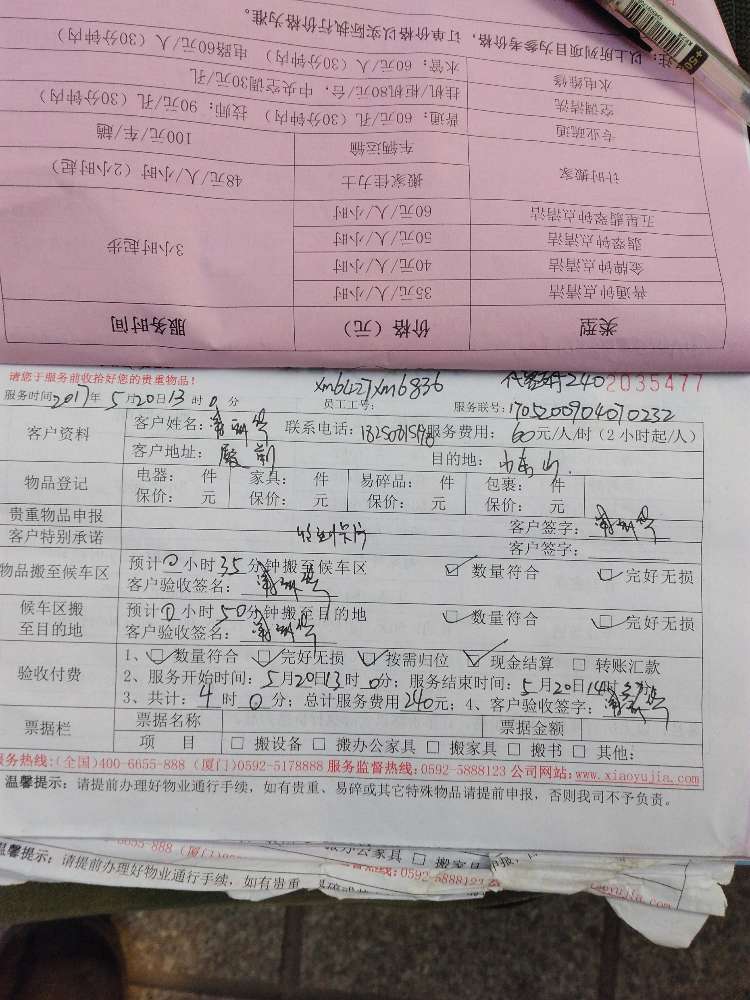 类型 价格（元） 服务时间
普通钟点清洁 35元/人/小时
金牌钟点清洁 40元/人/小时
3小时起步
翡翠钟点清洁 50元/人/小时
五星翡翠钟点清洁 60元/人/小时
计时搬家 搬家佳力士 48元/人/小时（2小时起）
车辆运输 100元/车/趟
专业疏通 普通：60元/孔（30分钟内） 技师：90元/孔（30分钟内）
空调清洗 挂机/柜机80元/台；中央空调30元/孔
水电维修 水管：60元/人（30分钟内） 电路60元/人（30分钟内）
注：以上所列项目为参考价格，订单价格以实际执行价格为准。
请您于服务前收拾好您的贵重物品！ xm6427 xm6836 240 2035477
服务时间2017年5月20日13时0分 员工工号： 服务联号：1705200904070232
客户资料 客户姓名： 联系电话： 服务费用：60元/人/时（2小时起/人）
客户地址：殿前 目的地：
物品登记 电器： 件 家具： 件 易碎品： 件 包裹： 件
保价： 元 保价： 元 保价： 元 保价： 元
贵重物品申报 客户签字：
客户特别承诺 客户签字：
物品搬至候车区 预计0小时35分钟搬至候车区 数量符合 完好无损
客户验收签名：
候车区搬至目的地 预计0小时50分钟搬至目的地 数量符合 完好无损
客户验收签名：
验收付费 1、数量符合 完好无损 按需归位 现金结算 转账汇款
2、服务开始时间：5月20日13时0分；服务结束时间：5月20日14时
3、共计：4时0分；总计服务费用240元；4、客户验收签字：
票据栏 票据名称 票据金额
项 目 搬设备 搬办公家具 搬家具 搬书 其他：
服务热线：(全国)400-6655-888 (厦门)0592-5178888 服务监督热线：0592-5888123 公司网站：www.xiaoyujia.com
温馨提示：请提前办理好物业通行手续，如有贵重、易碎或其它特殊物品请提前申报，否则我司不予负责。